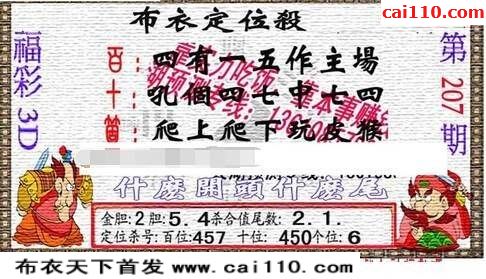 cai110.com
布衣定位殺
福彩3D
第207期
百:四有一五作主場
十:吼個四七中七四
箇:爬上爬下玩皮猴
什麼開頭什麼尾
金胆:2胆:5.4杀合值尾数:2.1.
定位杀号:百位:457 十位:450个位:6
布衣天下首发 www.cai110.com